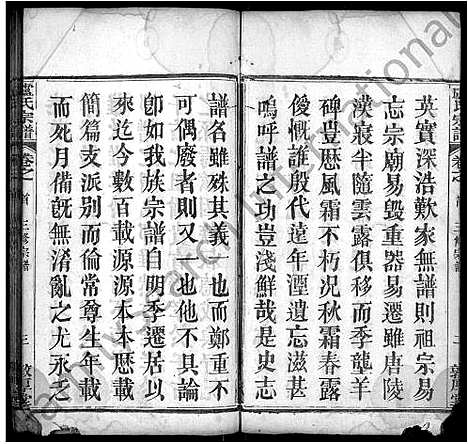 盧氏宗譜 卷之首 三修宗譜
英實深浩歎家無譜則祖宗易
忘宗廟易毀重器易遷雖唐陵
漢寢半隨雲露俱移而季龔羊
碑豊歷風霜不朽况秋霜春露
僾愾誰殷代遠年湮遺忘滋甚
嗚呼譜之功豈淺鮮哉是以史志
譜名雖殊其義一也而鄭重不
可偶廢者則又一也他不具論
卽如我族宗譜自明季遷居於
來迄今數百載源源本本歷載
簡篇支派別而倫常尊生年歿
而死月備旣無淆亂之尤永乏
盧氏宗譜 卷之首 三修宗譜 三 敦厚堂
FamilySearch International